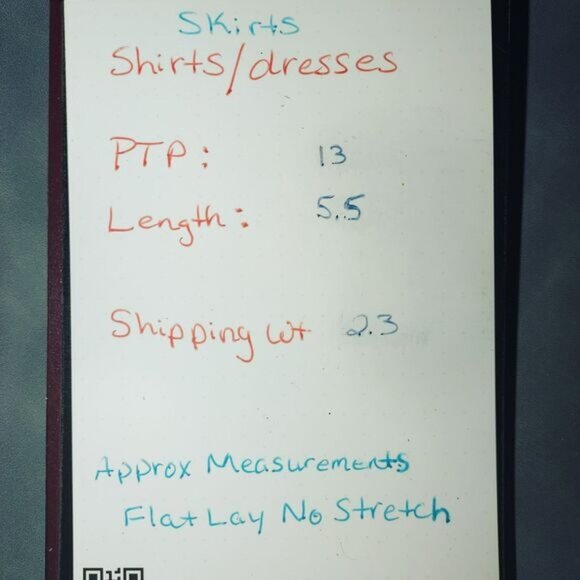 Skirts
Shirts/dresses
PTP: 13
Length: 5.5
Shipping Wt 2.3
Approx Measurements
Flat Lay No Stretch